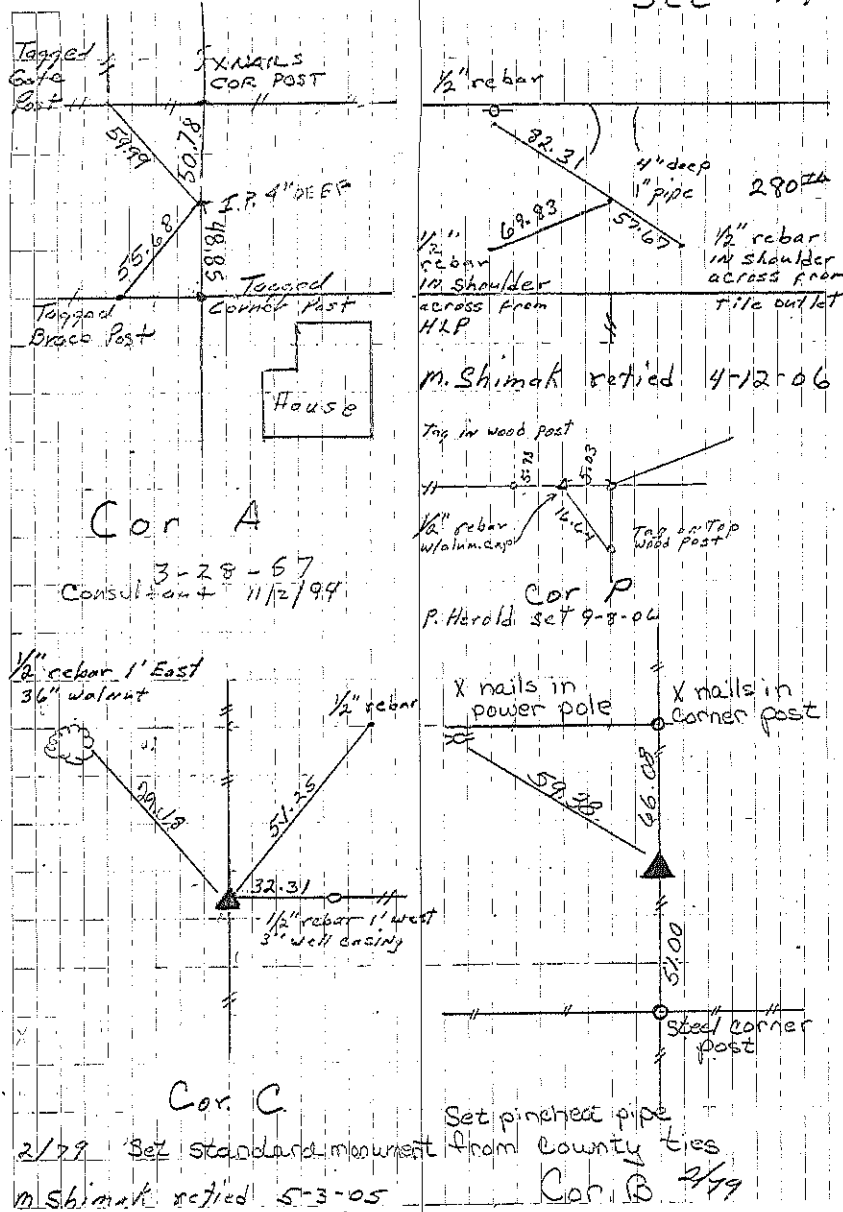 Tagged
Gate
Post
X NAILS
COR POST
59.99
50.78
I.P. 4" DEEP
55.68
48.85
Tagged
Brace Post
Tagged
Corner Post
House
Cor A
3-28-67
Consultant 11/2/94
1/2" rebar
82.31
4" deep
1" pipe
69.83
57.67
1/2"
rebar
in shoulder
across from
HLP
1/2" rebar
in shoulder
across from
tile outlet
M. Shimak retied 4-12-06
Tag in wood post
5.03
1/2" rebar
w/alum. cap
Tag on Top
wood post
Cor P
P. Herold set 9-8-06
1/2" rebar 1' East
36" walnut
1/2" rebar
29.18
51.25
32.31
1/2" rebar 1' west
3" well casing
Cor. C
2/79 Set standard monument
M Shimak retied 5-3-05
X nails in
power pole
X nails in
corner post
66.08
51.00
Steel corner
post
Set pinched pipe
from county ties
Cor. B 2/79